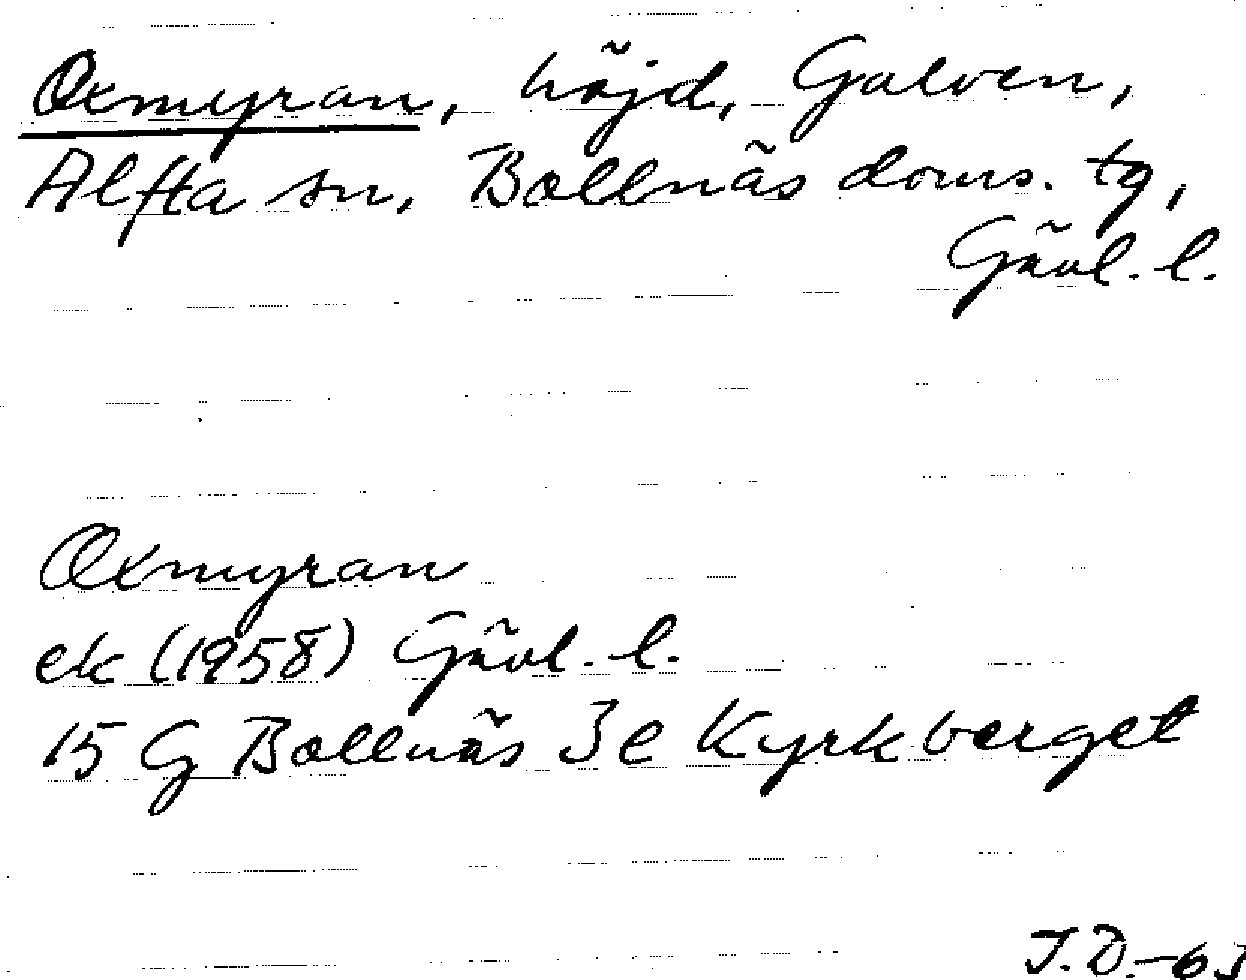 Oxmyran, höjd, Galven,
Alfta sn, Bollnäs doms. tg,
Gävl. l.
Oxmyran
ek (1958) Gävl. l.
15 G Bollnäs 3e Kyrkberget
J.D.-63